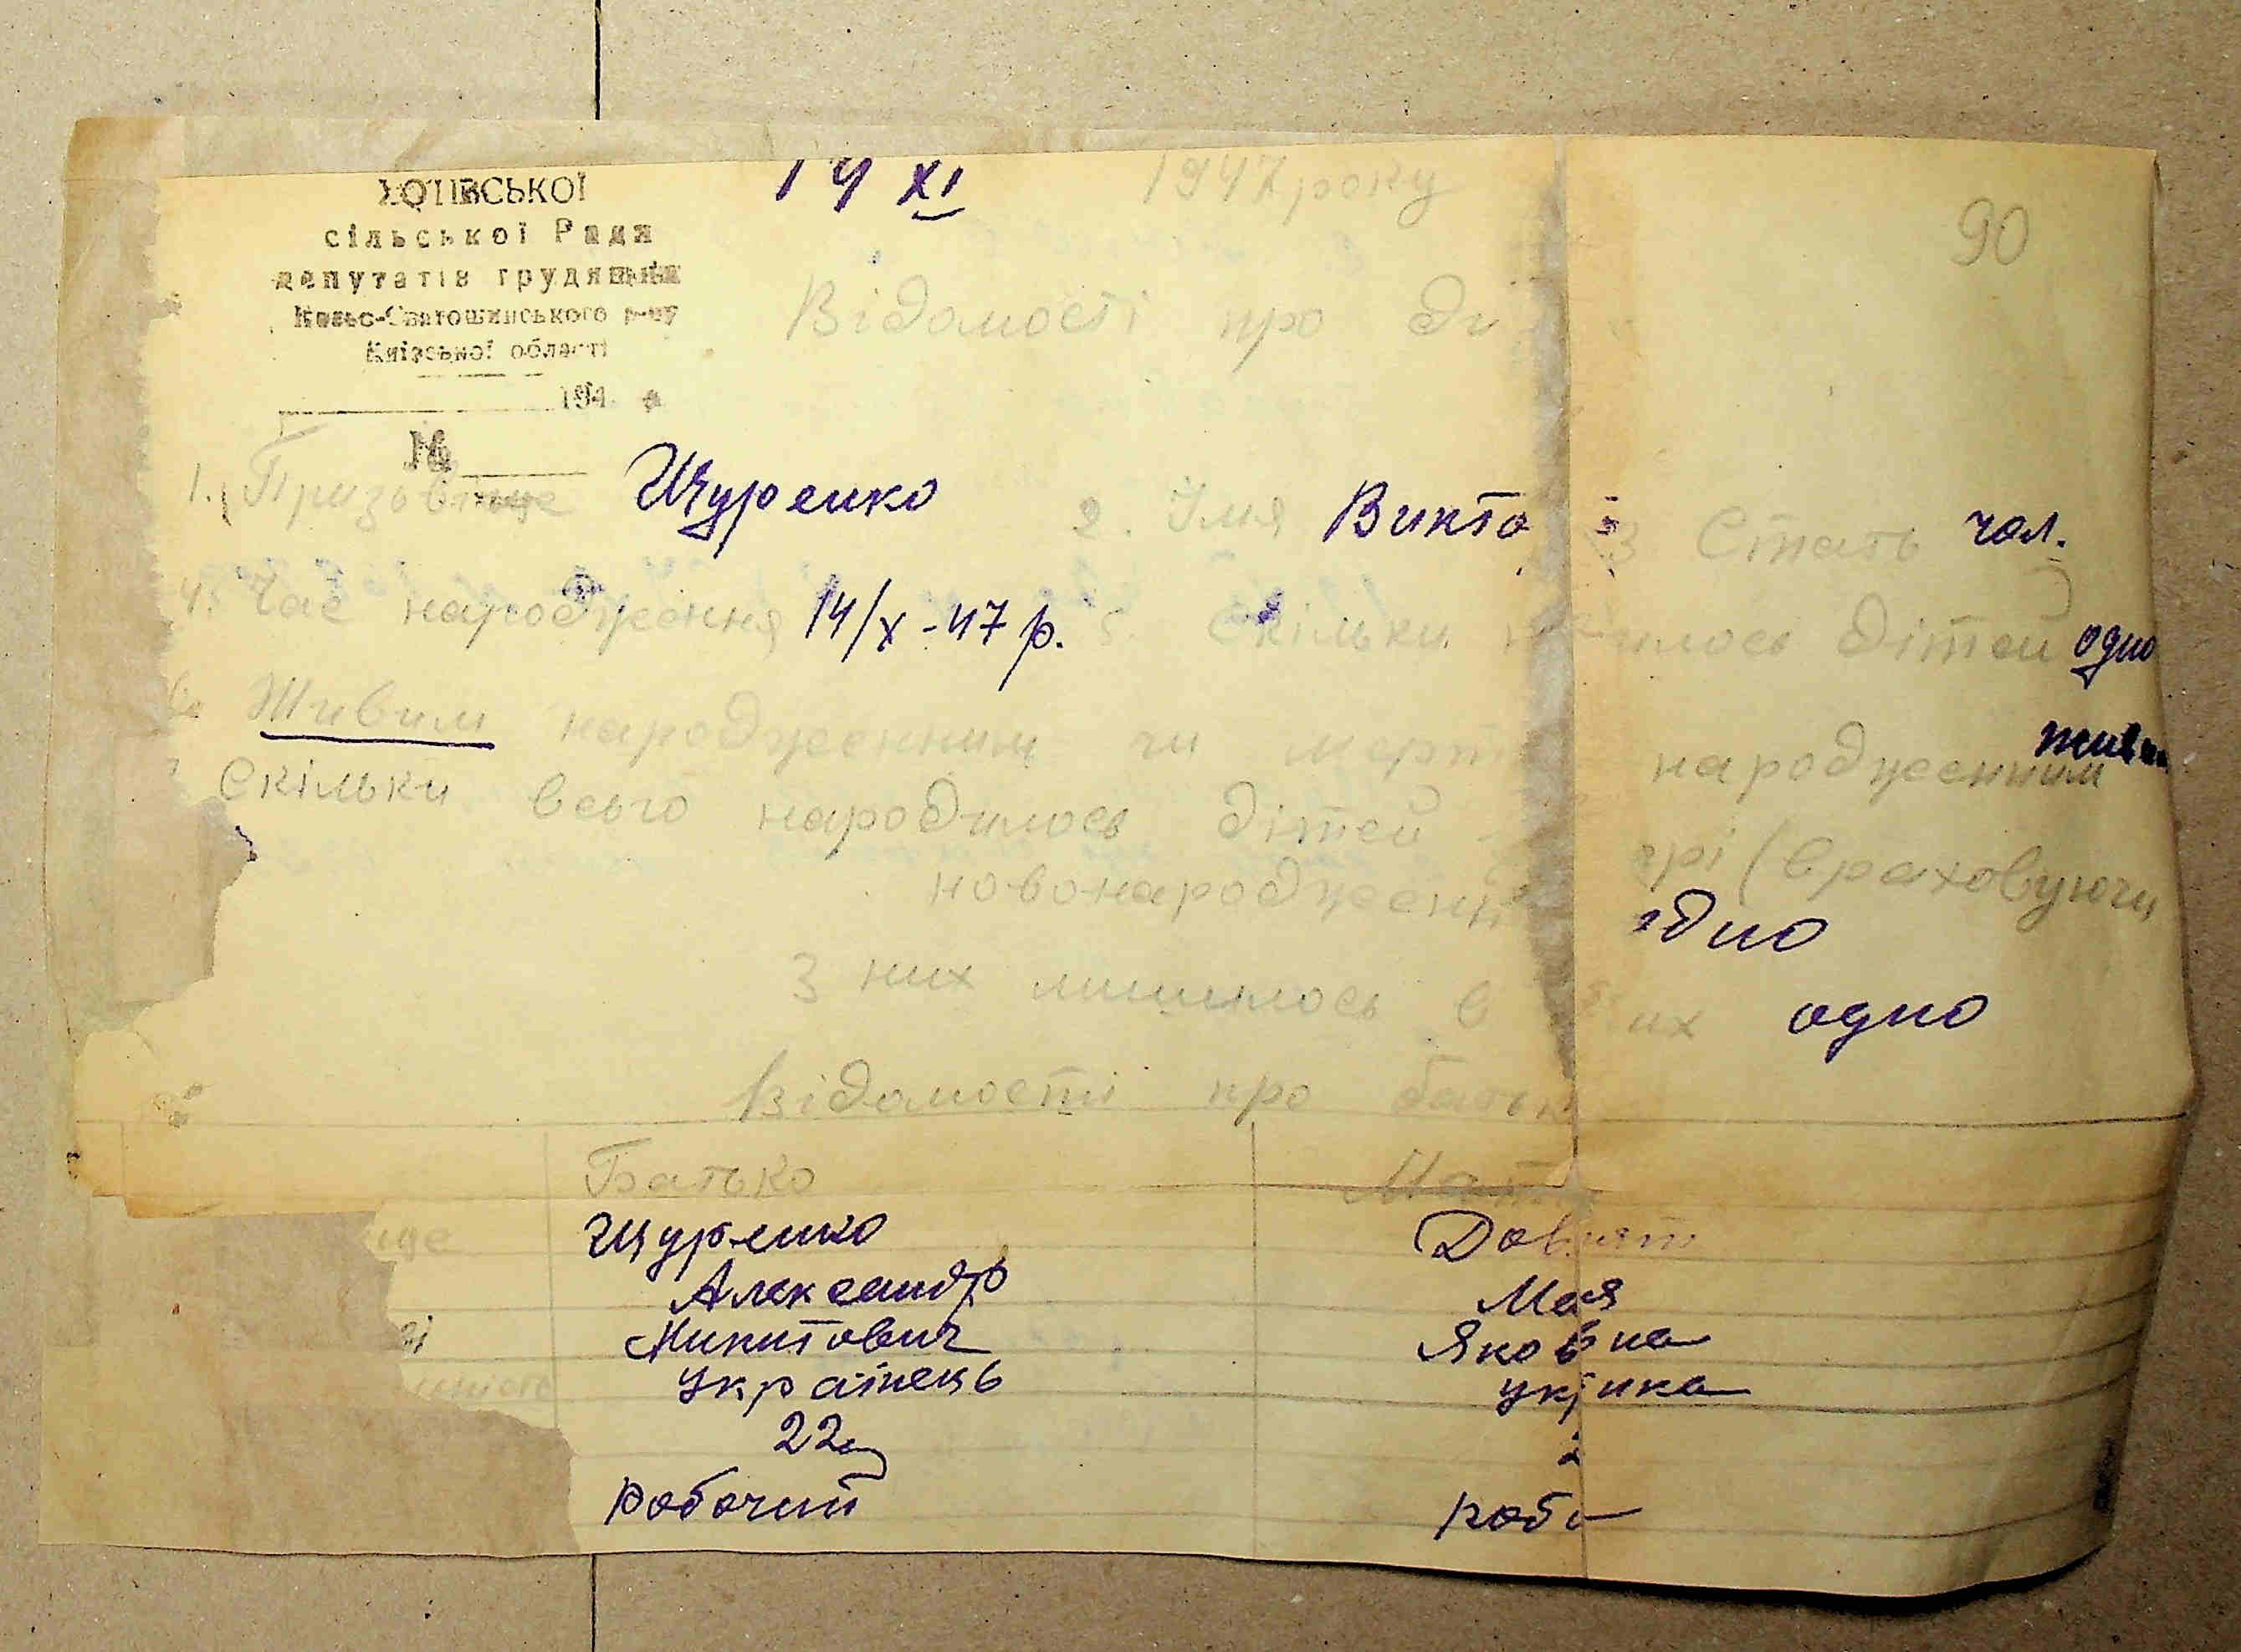 ХОТІВСЬКОЇ
сільської Ради
депутатів трудящих
Києво-Святошинського р-ну
Київської області
194 р.
№
14 XI 1947 року
90
Відомості про ди
1. Призвіще Щуренко 2. Імя Викто 3 Стать чол.
4. Час народження 14/X-47 р. 5. Скільки н илось дітей одно
6. Живим народженним чи мертв народженним живим
Скільки всього народилось дітей рі (враховуючи
новонароджен одно
З них лишилось в их одно
Відомості про батьк
Батько Мати
ще Щуренко
Александр Мая
Никитович Яковна
Українець укр інка
22
Робочий робо